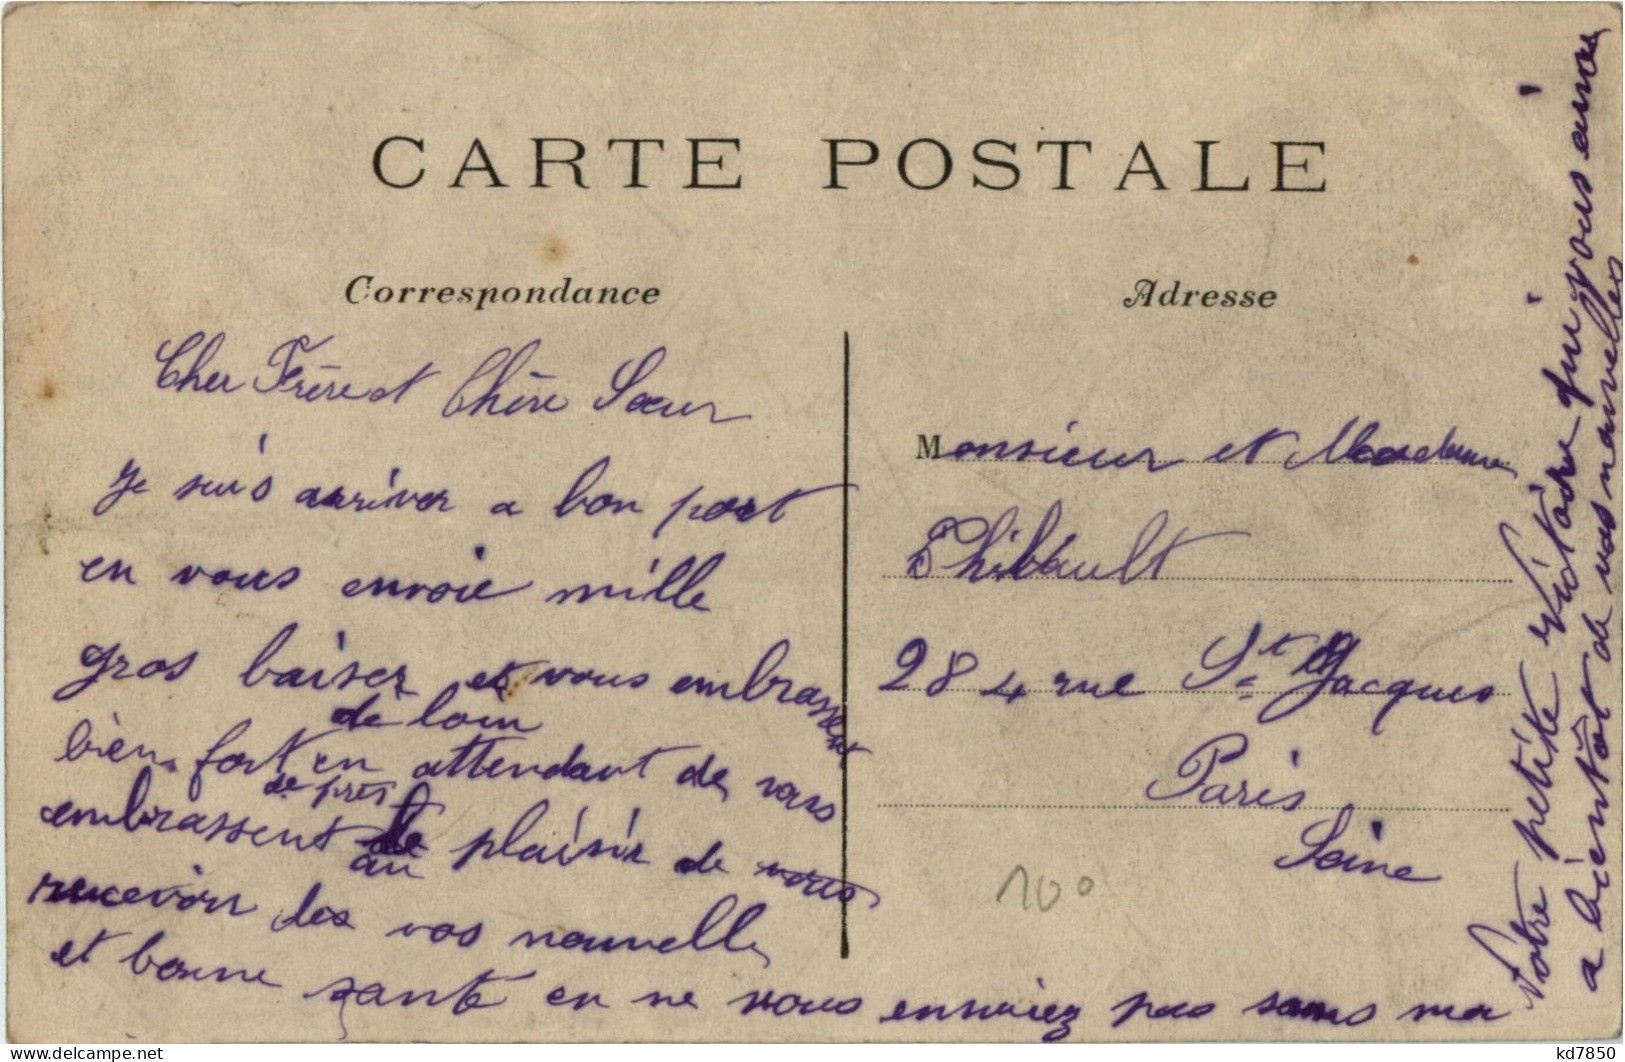 CARTE POSTALE
Correspondance
Adresse
Cher Frère et Chère Sœur
je suis arriver a bon port
en vous envoie mille
gros baiser et vous embrassent
de loin
bien fort en attendant de vous
de près
embrassent le plaisir de vous
au
recevoir des vos nouvelle
et bonne santé en ne vous ennuiez pas sans ma
Monsieur et Madame
Thibault
284 rue St Jacques
Paris
Seine
100
Votre petite qui vous aime
a bientôt de vos nouvelles
kd7850